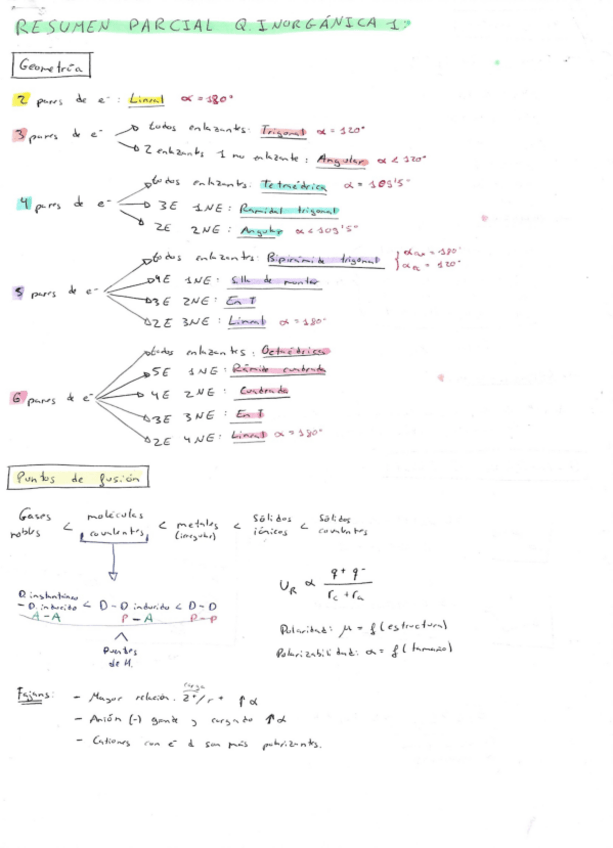 RESUMEN PARCIAL Q. INORGÁNICA 1:
Geometría
2 pares de e⁻ : Lineal α = 180°
3 pares de e⁻
todos enlazantes: Trigonal α = 120°
2 enlazants 1 no enlazante: Angular α < 120°
4 pares de e⁻
todos enlazantes: Tetraédrica α = 109'5°
3E 1NE: Piramidal trigonal
2E 2NE: Angular α < 109'5°
5 pares de e⁻
todos enlazantes: Bipirámide trigonal { αax = 180° αec = 120°
4E 1NE: Silla de montar
3E 2NE: En T
2E 3NE: Lineal α = 180°
6 pares de e⁻
todos enlazantes: Octaédrica
5E 1NE: Pirámide cuadrada
4E 2NE: Cuadrada
3E 3NE: En T
2E 4NE: Lineal α = 180°
Puntos de fusión
Gases nobles < moléculas covalentes < metales (irregular) < Sólidos iónicos < Sólidos covalentes
D instantáneo - D inducido < D-D inducido < D-D
A-A P-A P-P
Puentes de H.
U_R ∝ q⁺ q⁻ / rc + ra
Polaridad: μ = f(estructura)
Polarizabilidad: α = f(tamaño)
Fajans:
- Mayor relación carga Z⁺/r⁺ ↑α
- Anión (-) grande y cargado ↑α
- Cationes con e⁻ d son más polarizantes.